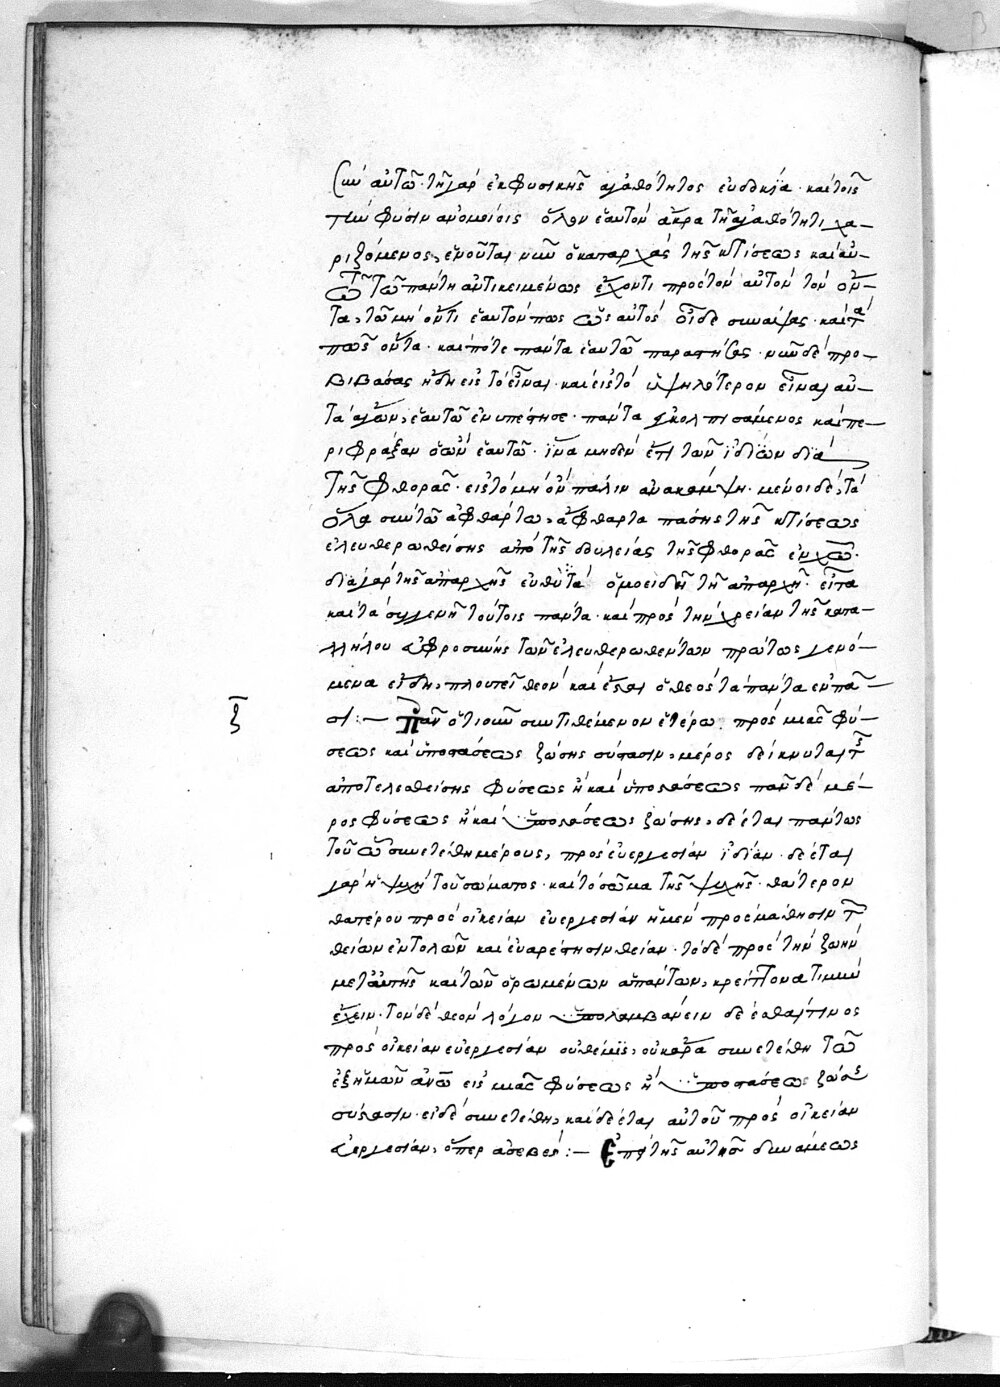 σὺν αὐτῶ· τῆ γὰρ ἐκ φυσικῆς ἀγαθότητος εὐδοκία· καὶ τοῖς
τὴν φύσιν ἀνομοίοις ὅλον ἑαυτὸν ἄκρα τῆ ἀγαθότητι χα-
ριζόμενος, ἑνοῦται νῦν ὁ καταρχὰς τῆς κτίσεως καὶ αὐ-
τῶ τῶ πάντη ἀντικειμένως ἔχοντι πρὸς τὸν αὐτὸν τὸν ὄν-
τα, τῶ μὴ ὄντι ἑαυτόν πως ὡς αὐτὸς οἶδε συνάψας· καὶ τὰ
πῶς ὄντα· καὶ πότε πάντα ἑαυτῶ παραστήσας· νῦν δὲ προ-
βιβάσας ἤδη εἰς τὸ εἶναι· καὶ εἰς τὸ ὑψηλότερον εἶναι αὐ-
τὰ ἄγων, ἑαυτῶ ἐνυπέστησε· πάντα ἐγκολπισάμενος καὶ πε-
ριφράξαν ὁ ὢν ἑαυτῶ· ἵνα μηδὲν ἔτι τῶν ἰδίων διὰ
τῆς φθορᾶς· εἰς τὸ μὴ ὂν πάλιν ἀνακάμψη· μένοι δὲ, τὰ
ὅλα σὺν τῶ ἀφθάρτω, ἄφθαρτα πάσης τῆς κτίσεως
ἐλευθερωθείσης ἀπὸ τῆς δουλείας τῆς φθορᾶς ἐν χω·
διὰ γὰρ τῆς ἀπαρχῆς εὐθὺ τὰ ὁμοειδῆ τῆ ἀπαρχῆ· εἶτα
καὶ τὰ συγγενῆ τούτοις πάντα· καὶ πρὸς τὴν χρείαν τῆς κατα-
λλήλου εὐφροσύνης τῶν ἐλευθερωθέντων πρώτως γενό-
μενα εἴδη, πλουτεῖ θεὸν καὶ ἔσται ὁ θεὸς τὰ πάντα ἐν πᾶ-
ξ σι:— Πᾶν ὁτιοῦν συντιθέμενον ἑτέρω πρὸς μιᾶς φύ-
σεως καὶ ὑποστάσεως ζώσης σύστασιν, μέρος δείκνυται τῆς
ἀποτελεσθείσης φύσεως ἢ καὶ ὑποστάσεως πᾶν δὲ μέ-
ρος φύσεως ἢ καὶ ὑποστάσεως ζώσης, δέεται πάντως
τοῦ ὧ συνετέθη μέρους, πρὸς εὐεργεσίαν ἰδίαν· δέεται
γὰρ ἡ ψυχὴ τοῦ σώματος· καὶ τὸ σῶμα τῆς ψυχῆς· θάτερον
θατέρου πρὸς οἰκείαν εὐεργεσίαν ἡ μὲν πρὸς μάθησιν τῶν
θείων ἐντολῶν καὶ εὐαρέστησιν θείαν· τὸ δὲ πρὸς τὴν ζωὴν
μετ' αὐτῆς καὶ τῶν ὁρωμένων ἁπάντων, κρείττονα τιμὴν
ἔχειν· τὸν δὲ θεὸν λόγον ὑπολαμβάνειν δέεσθαί τινος
πρὸς οἰκείαν εὐεργεσίαν οὐ θέμις, οὐκ ἄρα συνετέθη τῶ
ἐξ ἡμῶν ἀνω εἰς μιᾶς φύσεως ἢ ὑποστάσεως ζώσης
σύστασιν· εἰ δὲ συνετέθη, καὶ δέεται αὐτοῦ πρὸς οἰκείαν
εὐεργεσίαν, ὅπερ ἀσεβές:— Ἐπὶ τῆς αὐτῆς δυνάμεως